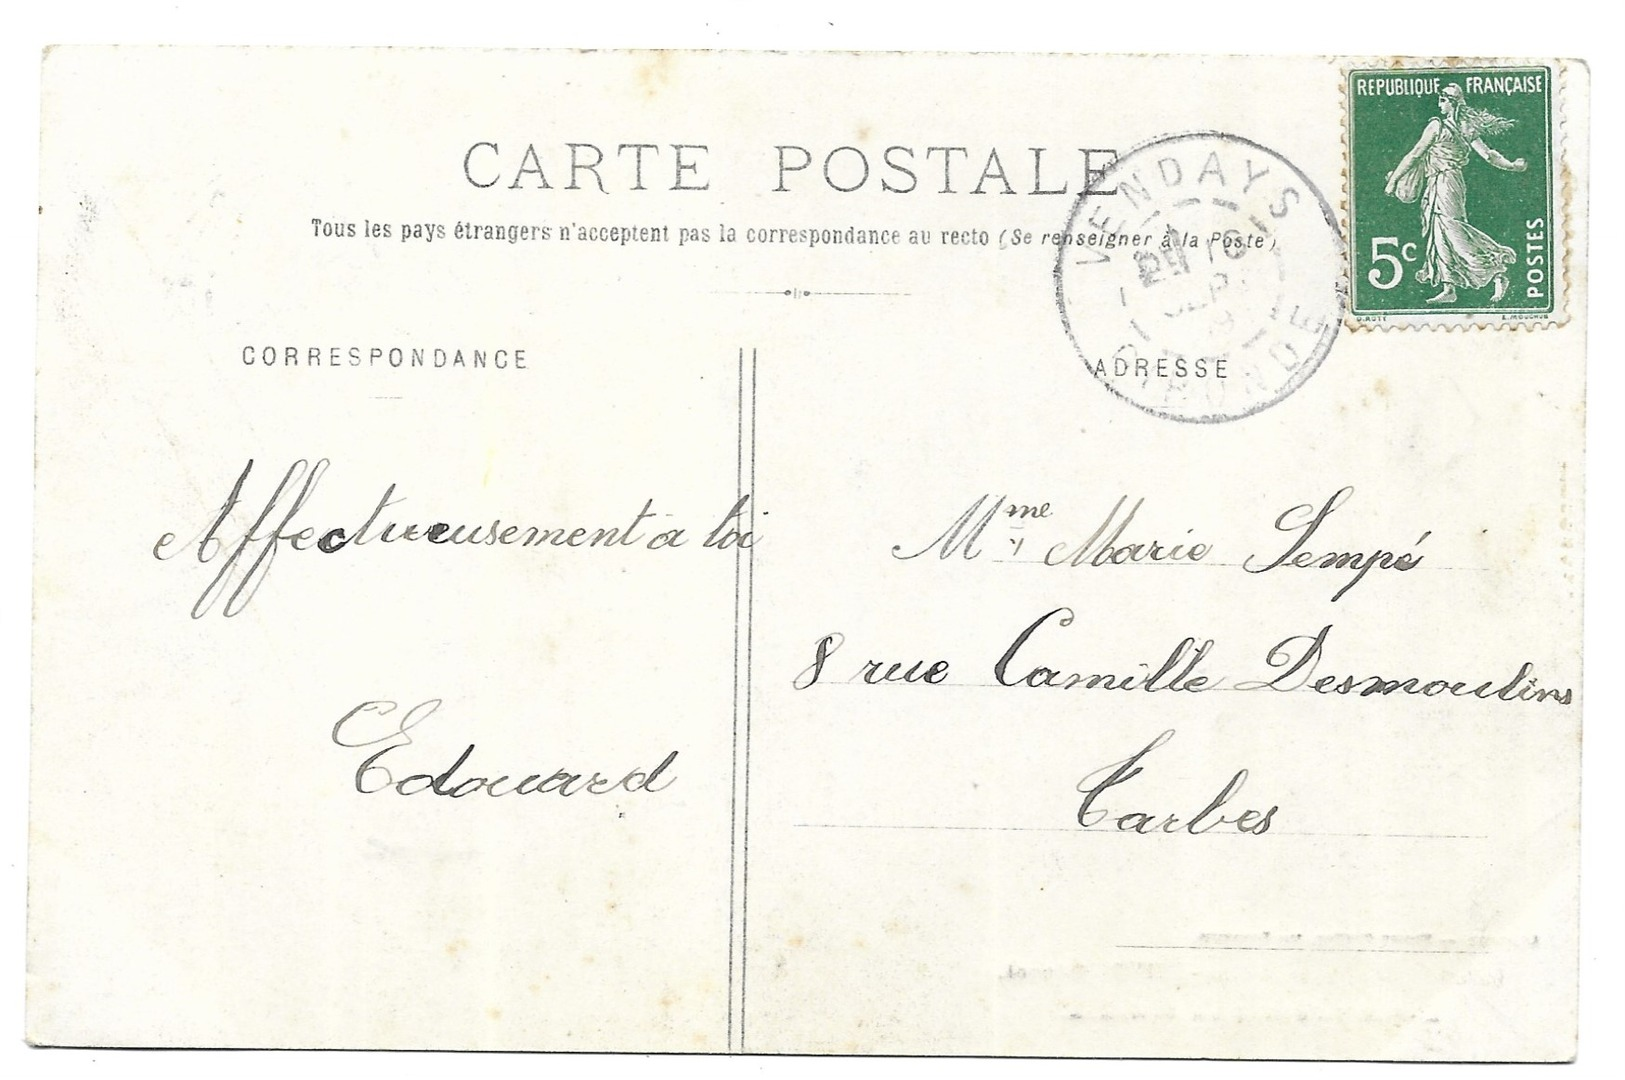 CARTE POSTALE
Tous les pays étrangers n'acceptent pas la correspondance au recto (Se renseigner à la Poste)
CORRESPONDANCE
Affectueusement a toi
Edouard
REPUBLIQUE FRANÇAISE
5c
POSTES
VENDAYS
GIRONDE
ADRESSE
Mme Marie Sempé
8 rue Camille Desmoulins
Tarbes